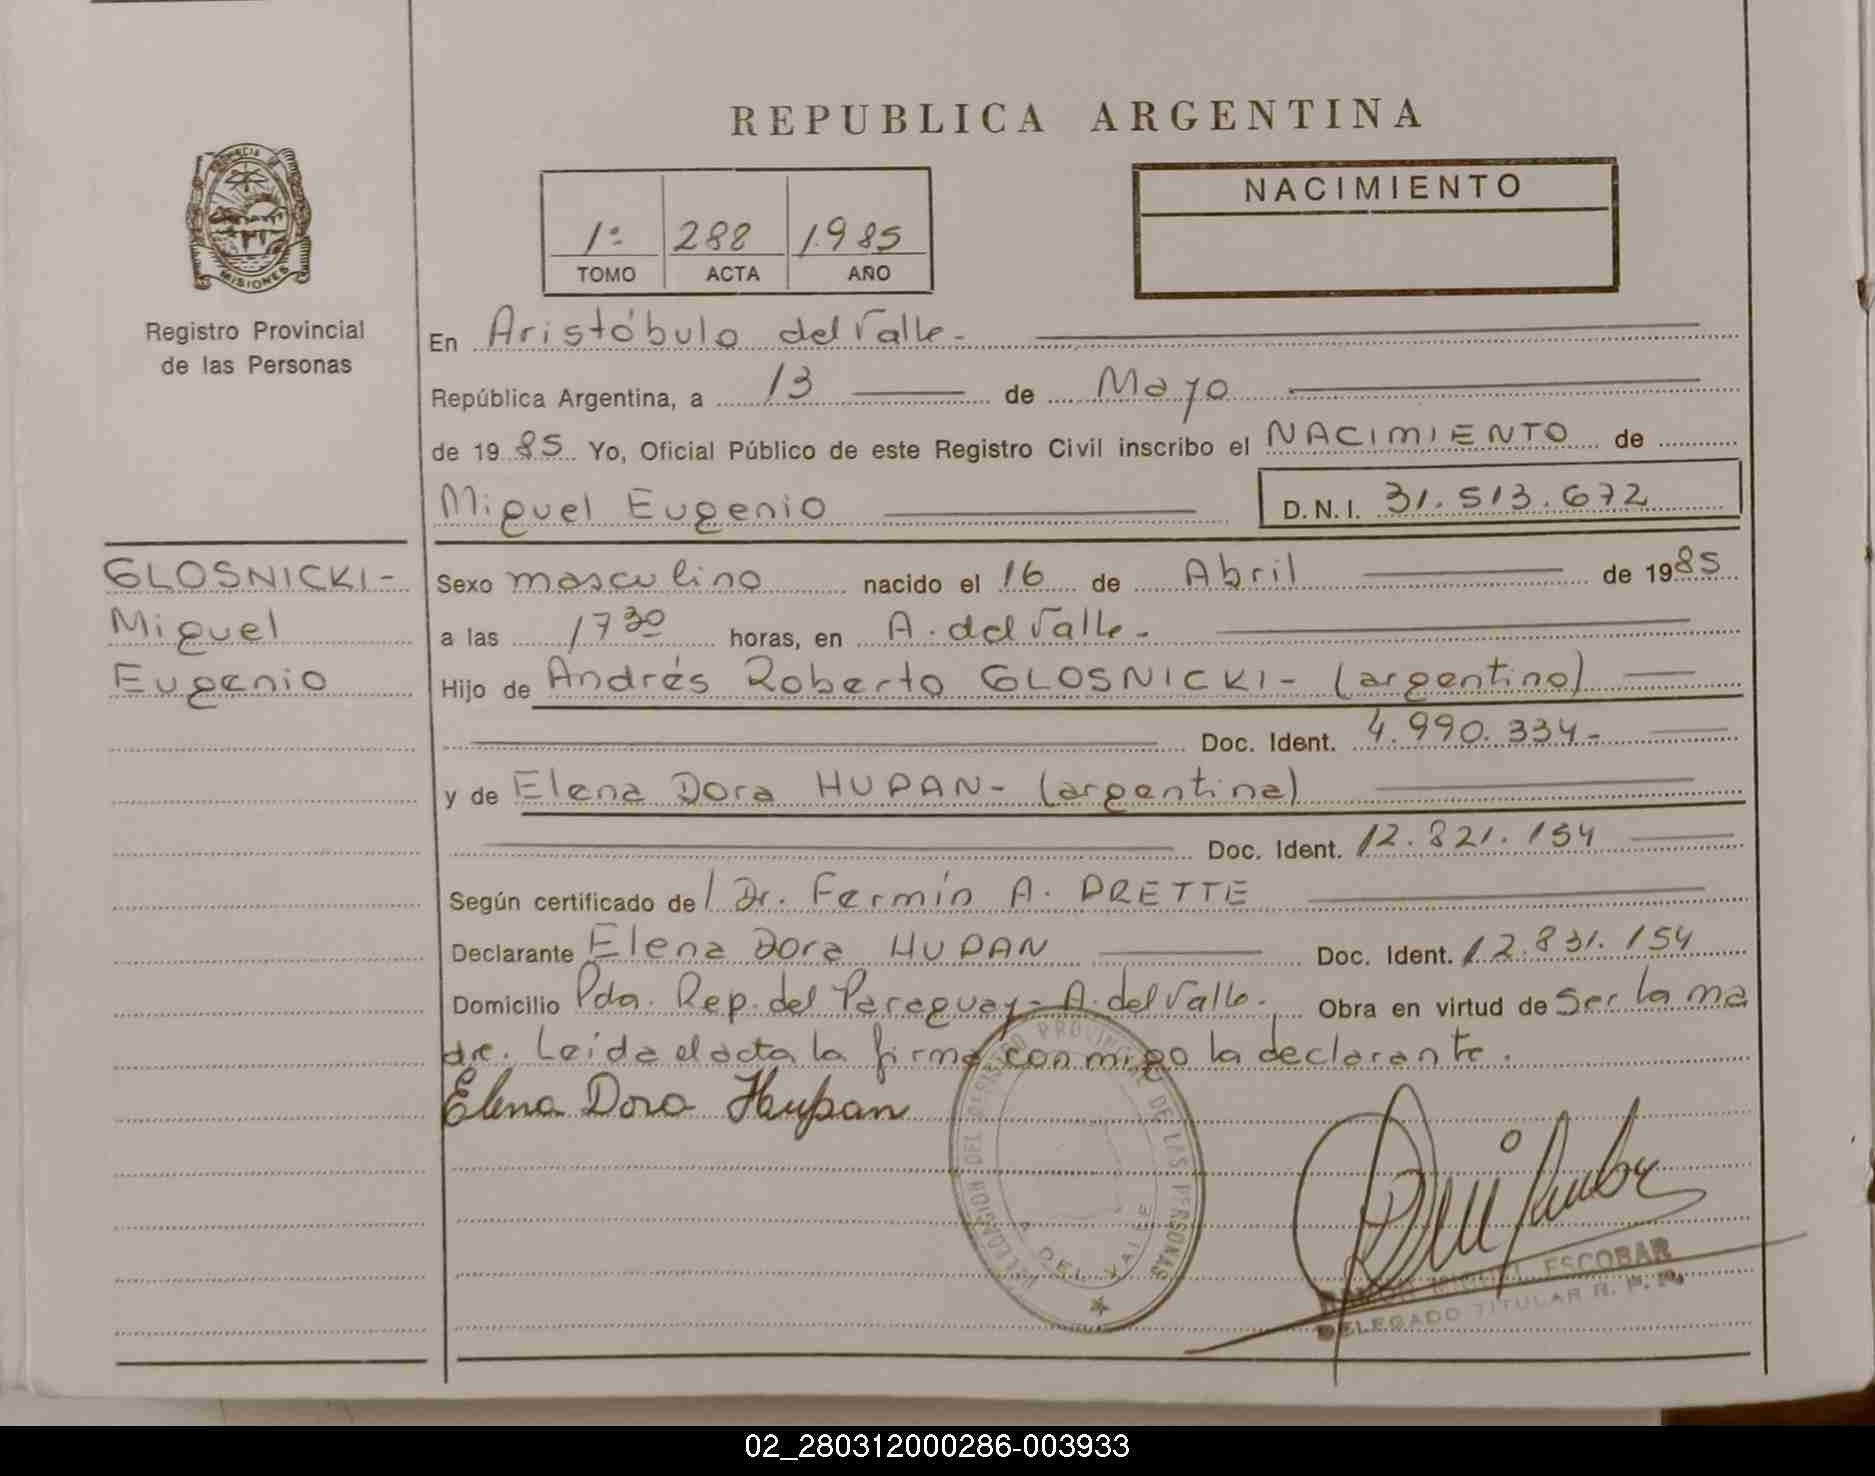 REPUBLICA ARGENTINA
PROVINCIA DE
MISIONES
Registro Provincial
de las Personas
1º 288 1985
TOMO ACTA AÑO
NACIMIENTO
En Aristóbulo del Valle.-
República Argentina, a 13 de Mayo
de 1985 Yo, Oficial Público de este Registro Civil inscribo el NACIMIENTO de
Miguel Eugenio D.N.I. 31.513.672
GLOSNICKI-
Miguel
Eugenio
Sexo masculino nacido el 16 de Abril de 1985
a las 17 30 horas, en A. del Valle.-
Hijo de Andrés Roberto GLOSNICKI- (argentino)
Doc. Ident. 4.990.334-
y de Elena Dora HUPAN- (argentina)
Doc. Ident. 12.821.154
Según certificado de / Dr. Fermín A. PRETTE
Declarante Elena Dora HUPAN Doc. Ident. 12.831.154
Domicilio Pda. Rep. del Paraguay- A. del Valle. Obra en virtud de Ser la ma
dre. Leida el acta la firma conmigo la declarante.
Elena Dora Hupan
DELEGACION DEL REGISTRO PROVINCIAL DE LAS PERSONAS
A. DEL VALLE
RAMON MIGUEL ESCOBAR
DELEGADO TITULAR R. P. P.
02_280312000286-003933